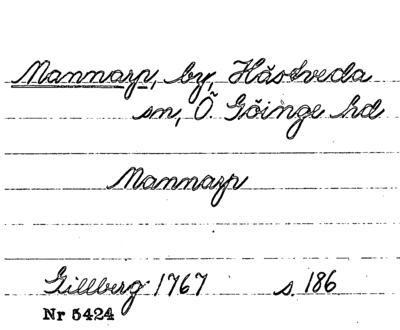 Mannarp, by, Hästveda
sn, Ö. Göinge hd
Mannarp
Gillberg 1767 s. 186
Nr 5424